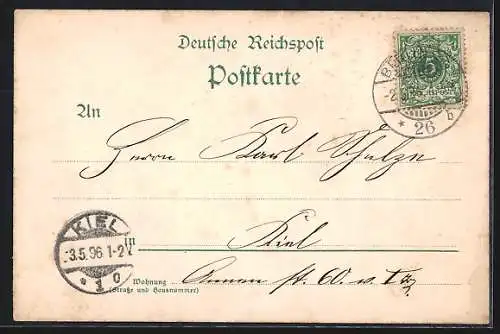 Deutsche Reichspost
Postkarte
5
* 26 b
An
Herrn Karl Schulze
KIEL
3.5.96.1-2N
* 1 c
in Kiel
Wohnung
(Straße und Hausnummer)
st. 60. w.